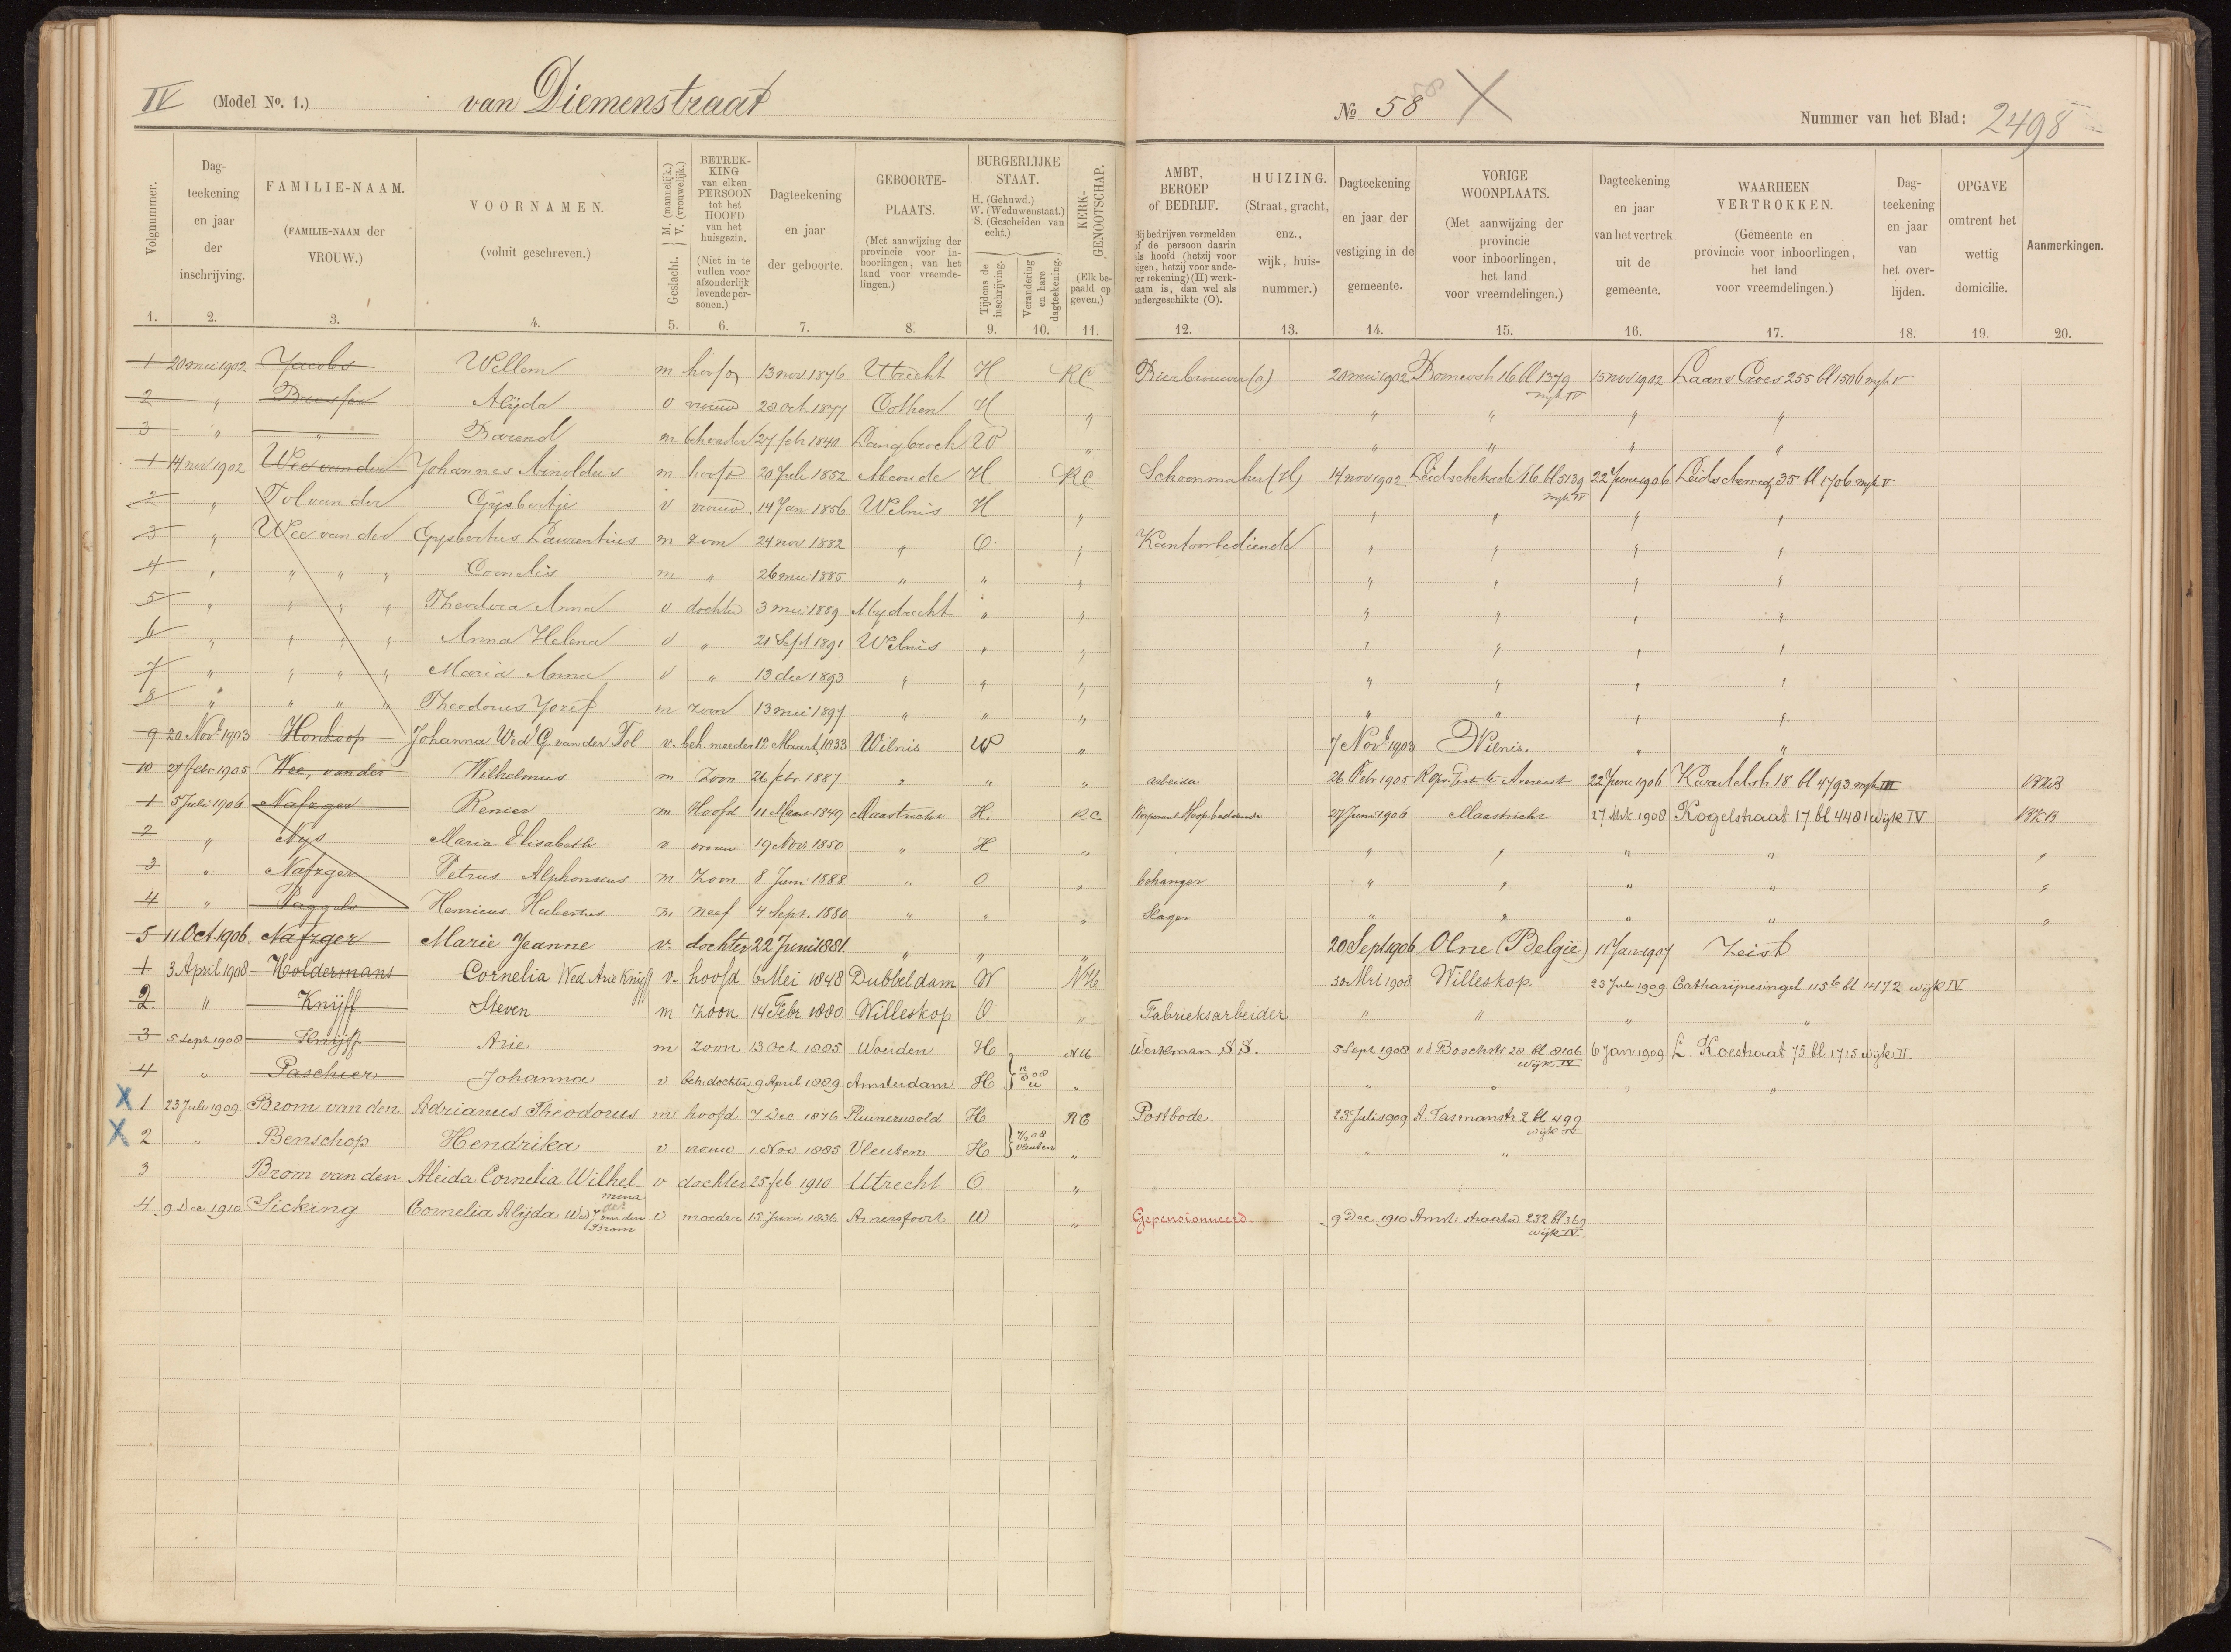 IV (Model No. 1.) van Diemenstraat No 58 58 X Nummer van het Blad: 2498
Volgnummer. Dagteekening en jaar der inschrijving. FAMILIE-NAAM. (FAMILIE-NAAM der VROUW.) VOORNAMEN. (voluit geschreven.) Geslacht. M. (mannelijk.) V. (vrouwelijk.) BETREKKING van elken PERSOON tot het HOOFD van het huisgezin. (Niet in te vullen voor afzonderlijk levende personen.) Dagteekening en jaar der geboorte. GEBOORTE-PLAATS. (Met aanwijzing der provincie voor inboorlingen, van het land voor vreemdelingen.) BURGERLIJKE STAAT. H. (Gehuwd.) W. (Weduwenstaat.) S. (Gescheiden van echt.) Tijdens de inschrijving. Verandering en hare dagteekening. KERK-GENOOTSCHAP. (Elk bepaald op geven.) AMBT, BEROEP of BEDRIJF. Bij bedrijven vermelden of de persoon daarin als hoofd (hetzij voor eigen, hetzij voor andere rekening) (H) werkzaam is, dan wel als ondergeschikte (O). HUIZING. (Straat, gracht, enz., wijk, huisnummer.) Dagteekening en jaar der vestiging in de gemeente. VORIGE WOONPLAATS. (Met aanwijzing der provincie voor inboorlingen, het land voor vreemdelingen.) Dagteekening en jaar van het vertrek uit de gemeente. WAARHEEN VERTROKKEN. (Gemeente en provincie voor inboorlingen, het land voor vreemdelingen.) Dagteekening en jaar van het overlijden. OPGAVE omtrent het wettig domicilie. Aanmerkingen.
1. 2. 3. 4. 5. 6. 7. 8. 9. 10. 11. 12. 13. 14. 15. 16. 17. 18. 19. 20.
1 20 mei 1902 Jacobs Willem m hoofd 13 nov 1876 Utrecht H RC Bierbrouwer (o) 20 mei 1902 16 bl 1379 wijk IV 15 nov 1902 255 bl 1506 wijk V
2 " Alijda v vrouw 28 oct 1877 Cothen H " " " " "
3 " " Barend m behvader 27 feb 1840 Langbroek W " " " " "
1 14 nov 1902 Wee van der Johannes Arnoldus m hoofd 20 Juli 1852 Abcoude H RC Schoenmaker (H) 14 nov 1902 Leidschekade 16 bl 5139 wijk IV 22 Juni 1906 Leidscheweg 35 bl 1706 wijk V
2 " Tol van der Gijsbertje v vrouw 14 Jan 1856 Wilnis H " " " " "
3 " Wee van der Gijsbertus Laurentius m zoon 24 nov 1882 " O " Kantoorbediende " " " "
4 " " " " Cornelis m " 26 mei 1885 " " " " " " "
5 " " " " Theodora Anna v dochter 3 mei 1889 Mijdrecht " " " " " "
6 " " " " Anna Helena v " 21 Sept 1891 Wilnis " " " " " "
7 " " " " Maria Anna v " 13 dec 1893 " " " " " " "
8 " " " " Theodorus Jozef m zoon 13 mei 1897 " " " " " " "
9 20 Novr 1903 Honkoop Johanna Wed G. van der Tol v. beh. moeder 12 Maart 1833 Wilnis W " 7 Novr 1903 Wilnis. " "
10 27 febr 1905 Wee, van der Wilhelmus m Zoon 26 febr 1887 " " " arbeider 26 Febr 1905 22 Juni 1906 18 bl 4793 wijk III
1 5 Juli 1906 Nafzger Renier m Hoofd 11 Maart 1849 Maastricht H. RC 27 Juni 1906 Maastricht 27 Mrt 1908 Kogelstraat 17 bl 4481 wijk IV
2 " Nijs Maria Elisabeth v vrouw 19 Novr 1850 " H " " " " " "
3 " Nafzger Petrus Alphonsus m Zoon 8 Juni 1888 " O " behanger " " " " "
4 " Paggels Henricus Hubertus m neef 4 Sept. 1880 " " " Slager " " " " "
5 11 Oct. 1906. Nafzger Marie Jeanne v. dochter 22 Juni 1881. " " " 20 Sept 1906 Olne (België) 11 Jan 1907 Zeist
1 3 April 1908 Holdermans Cornelia Wed Arie Knijff v. hoofd 6 Mei 1848 Dubbeldam W NH 30 Mrt 1908 Willeskop. 23 Juli 1909 Catharijnesingel 115 bl 1472 wijk IV
2. " Knijff Steven m zoon 14 Febr 1880. Willeskop O " Fabrieksarbeider " " " "
3 5 Sept 1908 Knijff Arie m zoon 13 Oct 1885 Woerden H NH Werkman S.S. 5 Sept 1908 v d Boschstr 28 bl 8106 wijk IV 6 Jan 1909 L. Koestraat 75 bl 1715 wijk II
4 " Paschier Johanna v beh. dochter 9 April 1889 Amsterdam H " " " " "
X 1 23 Juli 1909 Brom van den Adrianus Theodorus m hoofd 7 Dec 1876 Ruinerwold H RC Postbode. 23 Juli 1909 A. Tasmanstr 2 bl 499 wijk IV
X 2 " Benschop Hendrika v vrouw 1 Nov 1885 Vleuten H 08 Vleuten " " "
3 Brom van den Aleida Cornelia Wilhelmina v dochter 25 feb 1910 Utrecht O "
4 9 Dec 1910 Sicking Cornelia Alijda Wed van den Brom v moeder 15 Juni 1836 Amersfoort W " Gepensionneerd. 9 Dec 1910 Amst: straatw 232 bl 369 wijk IV.